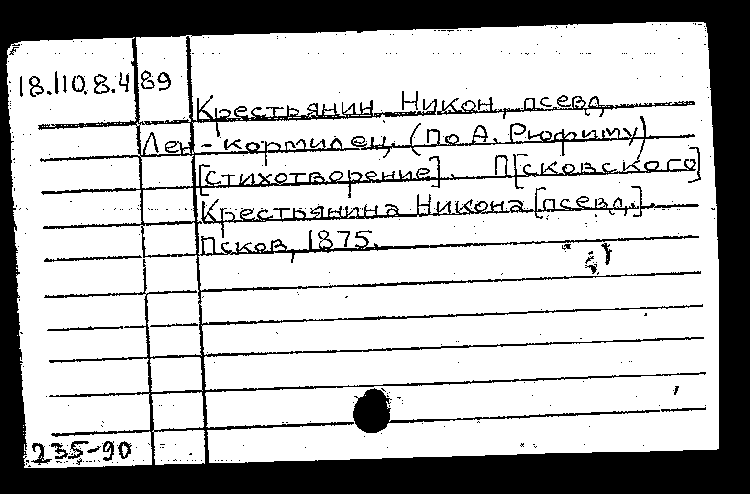 18.110.8.489
Крестьянин Никон, псевд.
Лен-кормилец (по А. Рюфиму)
[стихотворение]. П[сковского]
Крестьянина Никона [псевд.].
Псков, 1875.
235-90